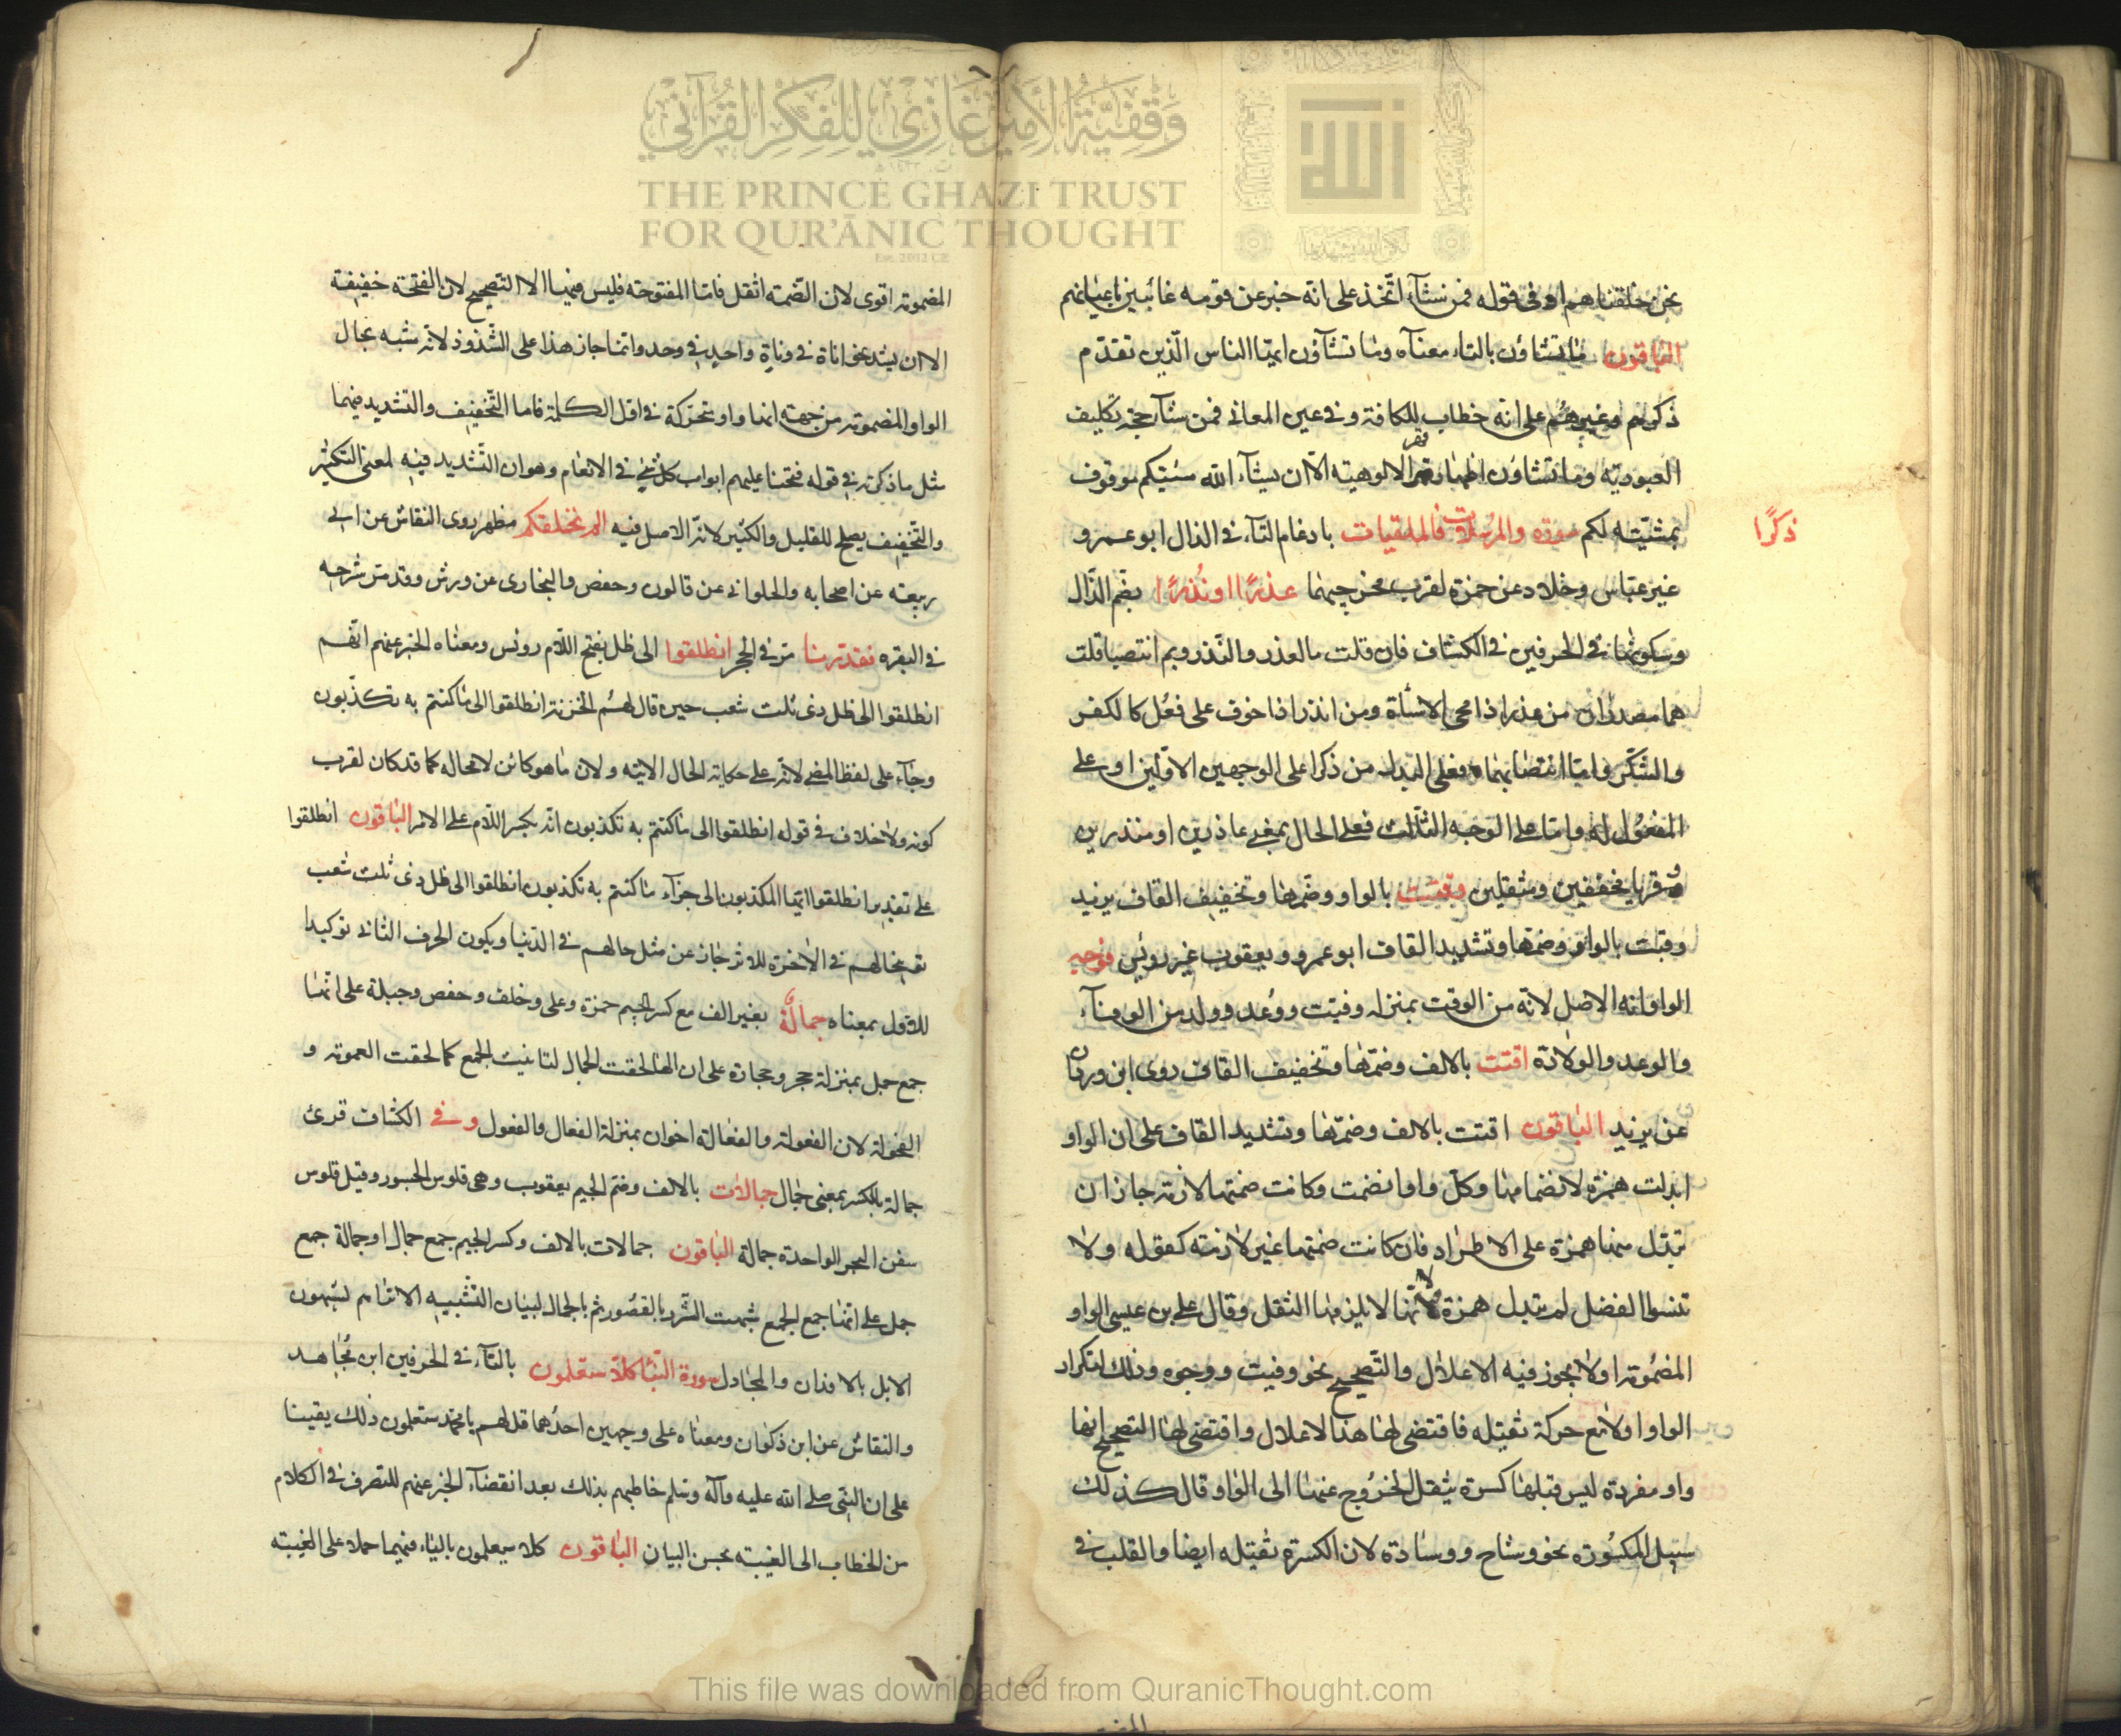 وَقْفِيَّةُ الأَمِيرِ غَازِي لِلْفِكْرِ القُرْآنِي
THE PRINCE GHAZI TRUST
FOR QUR'ĀNIC THOUGHT
Est. 2012 CE
نحن خلقناهم او فى قوله فمن شآء اتخذ على انه خبر عن قومه غائبين باعيانهم
الباقون وما تشاؤن بالتاء معناه وما تشاؤن ايها الناس الذين تقدم
ذكرهم وغيرهم على انه خطاب للكافة وفى عين المعانى فمن شآء حجة تكليف
العبودية وما تشاؤن اظهار قهر الالوهية الا ان يشآء الله مشيتكم موقوف
بمشيته لكم سورة والمرسلات فالملقيات بادغام التآء فى الذال ابو عمرو
ذكرًا
غير عباس وخلاد عن حمزة لقرب مخرجيهما عذرًا او نُذرًا بضم الذال
وسكونها فى الحرفين فى الكشاف فان قلت ما العذر والنذر وبم انتصبا قلت
هما مصدران من عذر اذا محى الاساءة ومن انذر اذا خوف على فُعُل كالكفر
والشكر واما انتصابهما فعلى البدل من ذكرا على الوجهين الاولين او على
المفعول له واما على الوجه الثالث فعلى الحال بمعنى عاذرين او منذرين
وقريا مخففين ومثقلين وقتت بالواو وضمها وتخفيف القاف يزيد
وقتت بالواو وضمها وتشديد القاف ابو عمرو ويعقوب غير رويس فوجه
الواو انه الاصل لانه من الوقت بمنزلة وفيت ووُعد وولد من الوفآء
والوعد والولادة اقتت بالالف وضمها وتخفيف القاف روى ابن وردان
عن يزيد الباقون اقتت بالالف وضمها وتشديد القاف على ان الواو
ابدلت همزة لانضمامها وكل واو انضمت وكانت ضمتها لازمة جاز ان
تبدل منها همزة على الاطراد فان كانت ضمتها غير لازمة كقوله ولا
تنسوا الفضل لم تبدل همزة لانها لا يلزمها الثقل وقال على بن عيسى الواو
المضمومة اولا يجوز فيه الاعلال والتصحيح نحو وفيت ووجوه وذلك لتكرار
الواو اولا مع حركة ثقيلة فاقتضى لها هذا الاعلال واقتضى لها التصحيح انها
واو مفردة ليس قبلها كسرة يثقل الخروج عنها الى الواو قال كذلك
سبيل المكسورة نحو وشاح ووسادة لان الكسرة ثقيلة ايضا والقلب فى
المضمومة اقوى لان الضمة اثقل فاما المفتوحة فليس فيها الا التصحيح لان الفتحة خفيفة
الا ان يشذ نحو اناة فى وناة واحد فى وحد وانما جاز هذا على الشذوذ لانه شبه بحال
الواو المضمومة من جهة انها واو متحركة فى اول الكلمة فاما التخفيف والتشديد فيهما
مثل ما ذكرته فى قوله فتحنا عليهم ابواب كل شئ فى الانعام وهو ان التشديد فيه لمعنى التكثير
والتخفيف يصلح للقليل والكثير لانه الاصل فيه الم نخلقكم مظهر روى النقاش عن ابى
ربيعة عن اصحابه والحلوانى عن قالون وحفص والبخارى عن ورش وقد مر شرحه
فى البقره فقدرنا مر فى الحجر انطلقوا الى ظل بفتح اللام رويس ومعناه الخبر عنهم انهم
انطلقوا الى ظل ذى ثلث شعب حين قال لهم الخزنة انطلقوا الى ما كنتم به تكذبون
وجآء على لفظ المضى لانه على حكاية الحال الاتية ولان ما هو كائن لا محالة كما قد كان لقرب
كونه ولا خلاف فى قوله انطلقوا الى ما كنتم به تكذبون انه بكسر اللام على الامر الباقون انطلقوا
على تقدير انطلقوا ايها المكذبون الى جزآء ما كنتم به تكذبون انطلقوا الى ظل ذى ثلث شعب
فى الاخرة عن مثل حالهم فى الدنيا ويكون الحرف الثانى توكيدا
للاول بمعناه جمالة بغير الف مع كسر الجيم حمزة وعلى وخلف وحفص وجبلة على انها
جمع جمل بمنزلة حجر وحجارة على ان الها لحقت الجمال لتانيث الجمع كما لحقت العمومة و
الفحولة لان الفعولة والفعالة اخوان بمنزلة الفعال والفعول وفى الكشاف قرئ
جمالة بالكسر بمعنى جمال جمالات بالالف وضم الجيم يعقوب وهى قلوس الجسور وقيل قلوس
سفن البحر الواحدة جمالة الباقون جمالات بالالف وكسر الجيم جمع جمال او جمالة جمع
جمل على انها جمع الجمع شبهت الشرر بالقصور ثم بالجمال لبيان التشبيه الا تراهم يشبهون
الابل بالافدان والمجادل سورة النبا كلا ستعلمون بالتآء فى الحرفين ابن مجاهد
والنقاش عن ابن ذكوان ومعناه على وجهين احدهما قل لهم يا محمد ستعلمون ذلك يقينا
على ان النبى صلى الله عليه وآله وسلم خاطبهم بذلك بعد انقضآء الخبر عنهم للتصرف فى الكلام
من الخطاب الى الغيبة بحسن البيان الباقون كلا سيعلمون بالياء فيهما حملا على الغيبة
This file was downloaded from QuranicThought.com